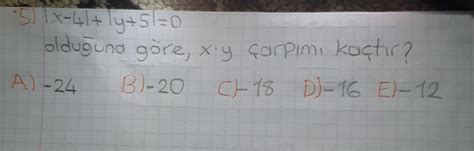 5) |x-4|+|y+5|=0
olduğuna göre, x.y çarpımı kaçtır?
A) -24 B) -20 C) -18 D) -16 E) -12